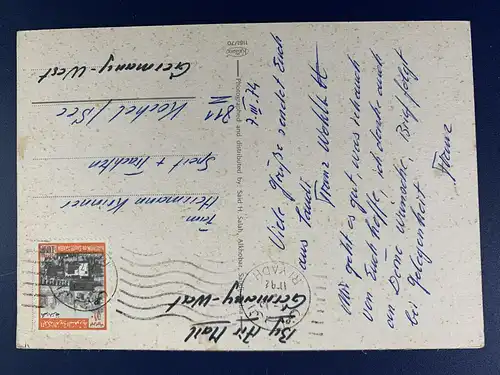 7. III. 74
Viele Grüße sendet Euch
aus Saudi
Franz Wohlt
Mir geht es gut, was ich auch
von Euch hoffe, ich denke auch
an Deine Wünsche, Brief folgt
bei Gelegenheit
Franz
1181/70
Photographed and distributed by: Said H. Salah, Alkhobar, Saudi
By Air Mail
Germany-West
RIYADH
Fam.
Hermann
Sport + Trachten
811 Kochel/See
Germany-West